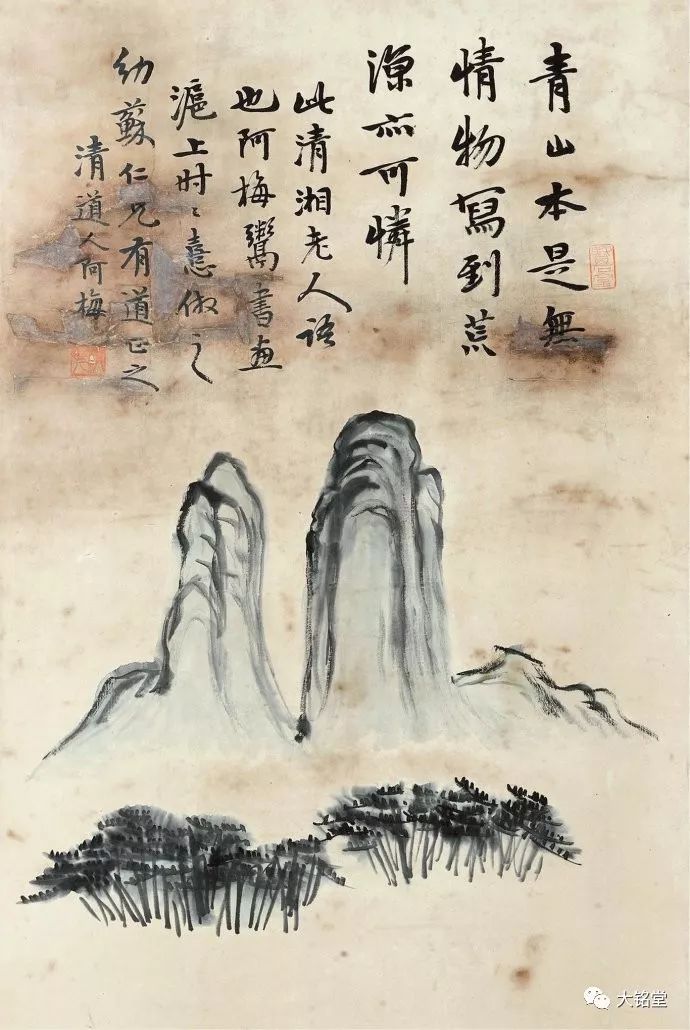 青山本是無
情物寫到荒
源亦可憐
此清湘老人語
也阿梅鬻書画
滬上时〻憙倣之
幼蘇仁兄有道正之
清道人阿梅
大铭堂